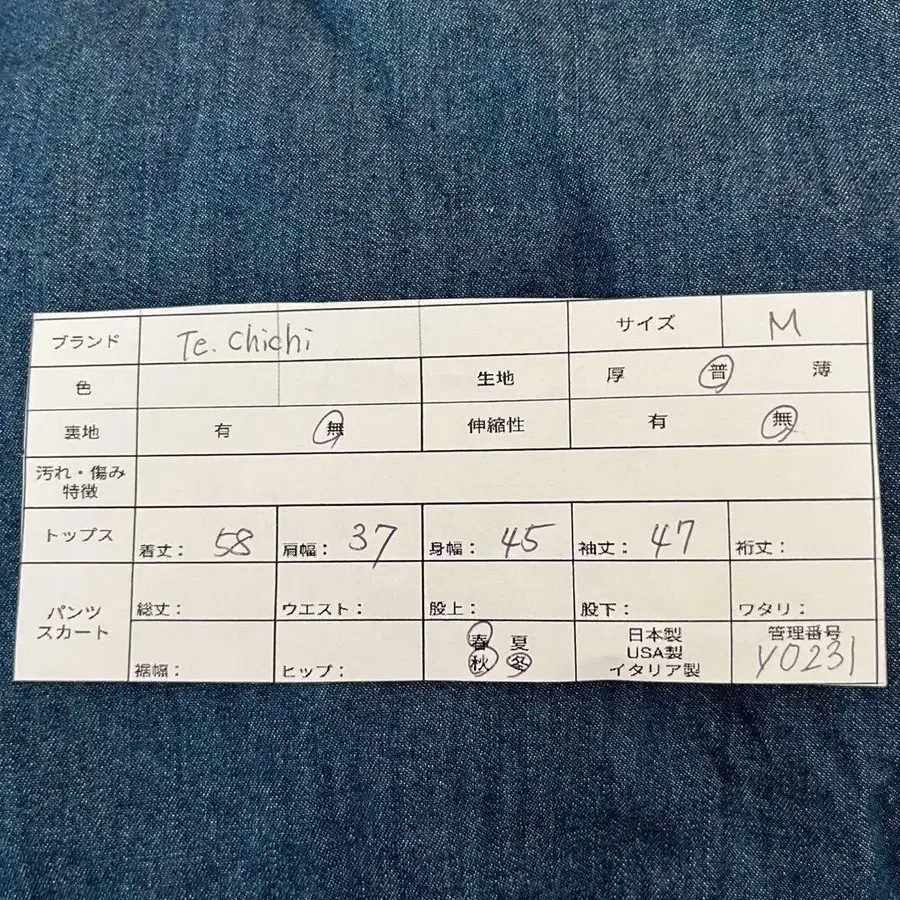 ブランド Te. chichi サイズ M
色 生地 厚 普 薄
裏地 有 無 伸縮性 有 無
汚れ・傷み
特徴
トップス 着丈： 58 肩幅： 37 身幅： 45 袖丈： 47 裄丈：
パンツ
スカート
総丈： ウエスト： 股上： 股下： ワタリ：
裾幅： ヒップ：
春 夏
秋 冬
日本製
USA製
イタリア製
管理番号
Y0231